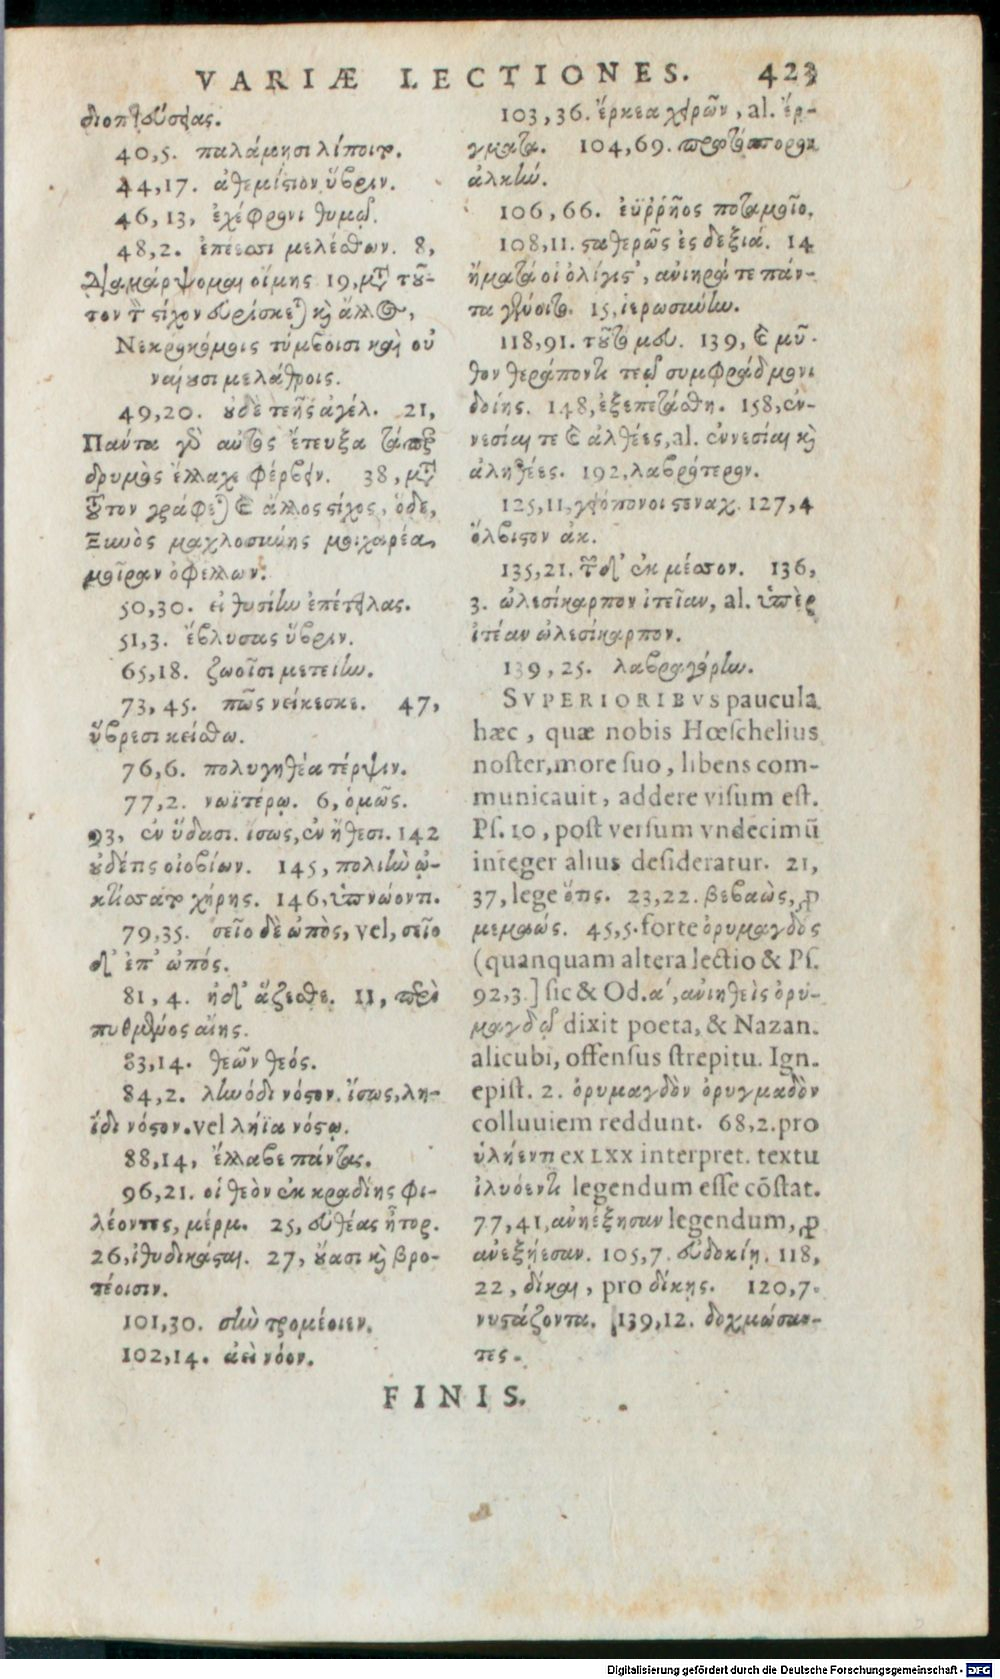 VARIÆ LECTIONES. 423
40,5. παλάμησι λίποιτο.
44,17. ἀθεμίστιον ὕβριν.
46,13, ἐχέφρονι θυμῷ.
48,2. ἐπέεσσι μελέσθων. 8,
Δραμάρψομαι οἴμης 19, μτ τοῦ-
τον τ στίχον εὑρίσκε) κὶ ἄλλος,
Νεκροκόμοις τύμβοισι καὶ οὐ
ναίουσι μελάθροις.
49,20. οὐδὲ τεῆς ἀγέλ. 21,
Πάντα γὸ αὐτὸς ἔτευξα
δρυμὸς ἔλλαχε φέρβειν. 38, μτ
τοῦτον γράφε) καὶ ἄλλος στίχος, ὅδε,
Ξυνὸς μαχλοσύνης μοιχαρέα
μοῖραν ὀφέλλων.
50,30. εἰ θυσίην ἐπέτειλας.
51,3. ἔβλυσας ὕβριν.
65,18. ζωοῖσι μετείην.
73,45. πῶς νείκεσκε. 47,
ὕβρεσι κείσθω.
76,6. πολυγηθέα τέρψιν.
77,2. νωϊτέρῳ. 6, ὁμῶς.
93, ἐν ὕδασι. ἴσως, ἐν ἤθεσι. 142
οὐδέπς οἰοβίων. 145, πολιὴν ᾠ-
κτίσσατο χήρης. 146, ὑπνώοντι.
79,35. σεῖο δὲ ὠπὸς, vel, σεῖο
δ' ἐπ' ὠπός.
81,4. ἠδ' ἅζεσθε. 11, πρὸ
πυθμένος αἴης.
83,14. θεῶν θεός.
84,2. λιώδι νόσον. ἴσως, λη-
ΐδι νόσον. vel λήϊα νόσῳ.
88,14, ἔλλαβε πάντας.
96,21. οἱ θεὸν ἐκ κραδίης φι-
λέοντες, μέρμ. 25, εὐθέας ἦτορ.
26, ἰθυδικάσαι. 27, ὔασι κὶ βρο-
τέοισιν.
101,30. σὺν τρομέοιεν.
102,14. ἀεὶ νόον.
103,36. ἕρκεα χειρῶν, al. ἕρ-
γματα. 104,69. πρωτόσπορον
ἀλκήν.
106,66. ἐϋῤῥῆος ποταμοῖο.
108,11. σταθερῶς ἐς δεξιά. 14
ἤματά οἱ ὀλίγιστ', ἀνιηρά τε πάν-
τα γένοιτο. 15, ἱερωσύνην.
118,91. τοῦτο μευ. 139, καὶ μῦ-
θον θεράποντι τεῷ συμφράδμονι
δοίης. 148, ἐξεπετάσθη. 158, ἐν-
νεσίαι τε καὶ ἀληθέες, al. ἐννεσίαι κὶ
ἀληθέες. 192, λαβρότερον.
125,11, γεόπονοι στοναχ. 127,4
ὄλβιστον ἀκ.
135,21. τοῦδ' ἐκ μέσσον. 136,
3. ὠλεσίκαρπον ἰτεῖαν, al. ὑπὲρ
ἰτέαν ὠλεσίκαρπον.
139,25. λαβραγόρην.
SVPERIORIBVS paucula
hæc, quæ nobis Hœschelius
noster, more suo, libens com-
municauit, addere visum est.
Ps. 10, post versum vndecimū
integer alius desideratur. 21,
37, lege ὅπς. 23,22. βεβαὼς, ꝓ
μεμαώς. 45,5. forte ὀρυμαγδὸς
(quanquam altera lectio & Ps.
92,3.] sic & Od. α', ἀνιηθεὶς ὀρυ-
μαγδῷ dixit poeta, & Nazan.
alicubi, offensus strepitu. Ign.
epist. 2. ὀρυμαγδὸν ὀρυγμαδὸν
colluuiem reddunt. 68,2. pro
ὑλήεντι ex LXX interpret. textu
ἰλυόεντι legendum esse cōstat.
77,41, ἀνήεξησαν legendum, ꝓ
ἀνεξήεσαν. 105,7. εὐδοκίῃ. 118,
22, δίκαι, pro δίκης. 120,7.
νυστάζοντα. 139,12. δοχμώσαν-
τες.
FINIS.
Digitalisierung gefördert durch die Deutsche Forschungsgemeinschaft - DFG